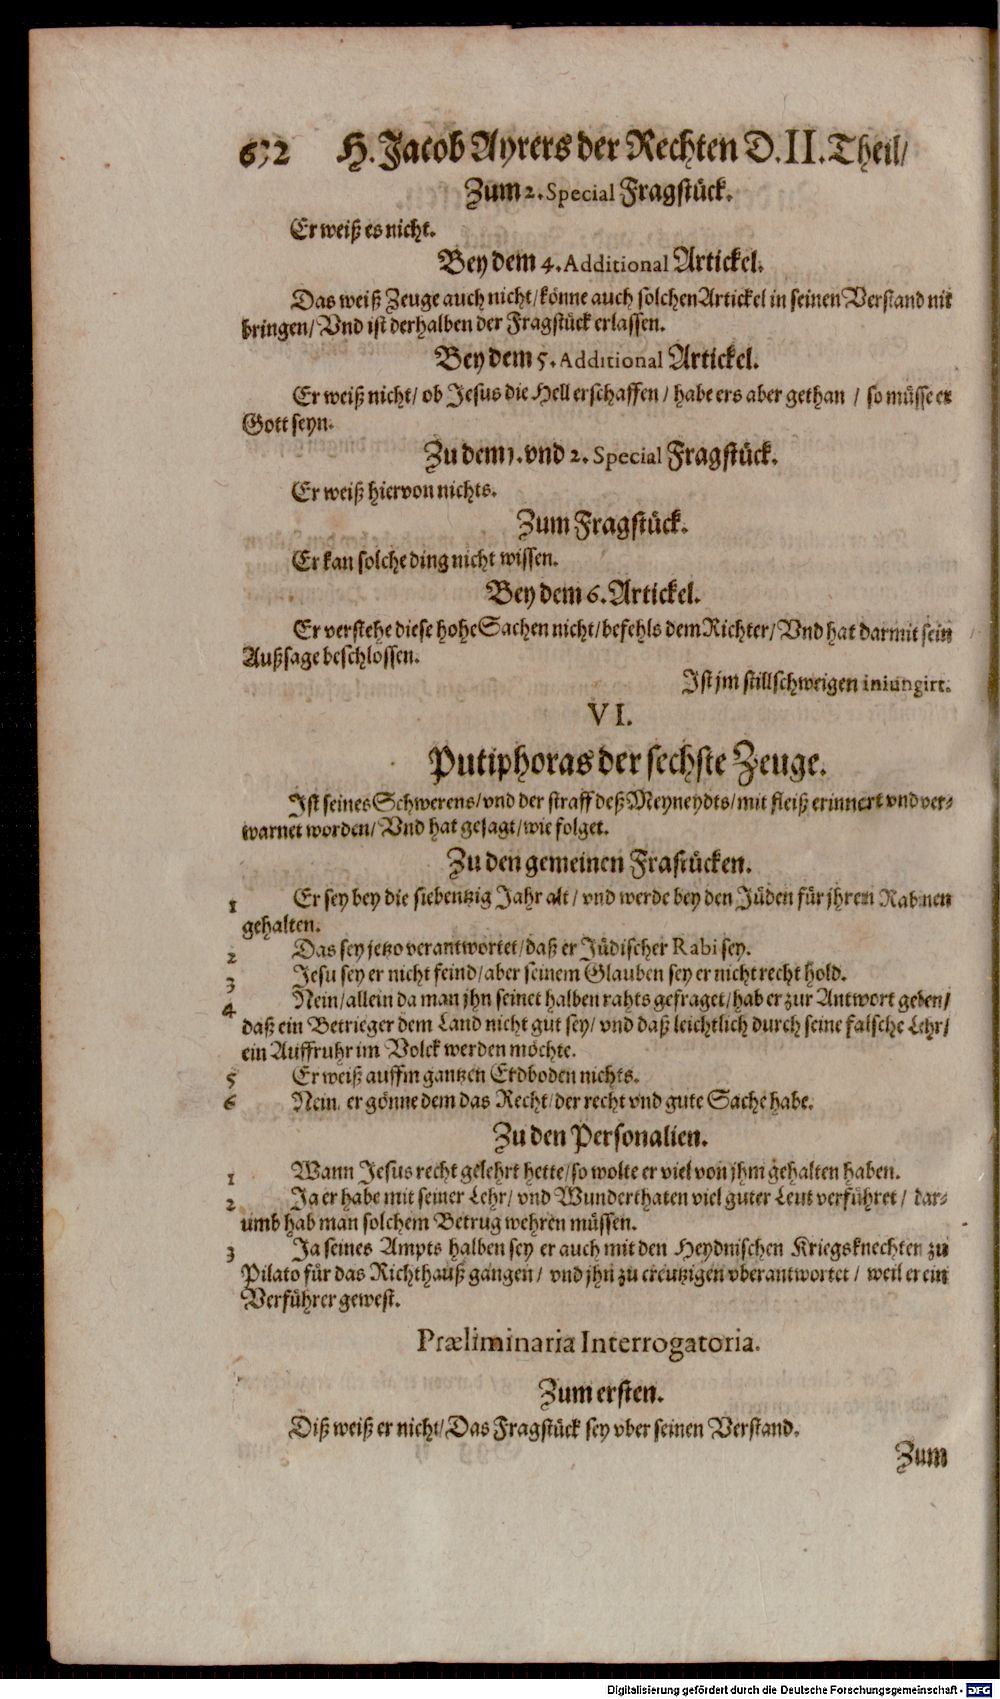 632 H. Jacob Ayrers der Rechten D. II. Theil/
Zum 2. Special Fragstück.
Er weiß es nicht.
Bey dem 4. Additional Artickel.
Das weiß Zeuge auch nicht/ könne auch solchen Artickel in seinen Verstand nit
bringen/ Vnd ist derhalben der Fragstück erlassen.
Bey dem 5. Additional Artickel.
Er weiß nicht/ ob Jesus die Hell erschaffen/ habe ers aber gethan/ so müsse er
Gott seyn.
Zu dem 1. vnd 2. Special Fragstück.
Er weiß hiervon nichts.
Zum Fragstück.
Er kan solche ding nicht wissen.
Bey dem 6. Artickel.
Er verstehe diese hohe Sachen nicht/ befehls dem Richter/ Vnd hat darmit sein
Außsage beschlossen.
Ist jm stillschweigen iniungirt.
VI.
Putiphoras der sechste Zeuge.
Ist seines Schwerens/ vnd der straff deß Meyneydts/ mit fleiß erinnert vnd ver-
warnet worden/ Vnd hat gesagt/ wie folget.
Zu den gemeinen Frastücken.
1 Er sey bey die siebentzig Jahr alt/ vnd werde bey den Jüden für jhren Rabinen
gehalten.
2 Das sey jetzo verantwortet/ daß er Jüdischer Rabi sey.
3 Jesu sey er nicht feind/ aber seinem Glauben sey er nicht recht hold.
4 Nein/ allein da man jhn seinet halben rahts gefraget/ hab er zur Antwort geben/
daß ein Betrieger dem Land nicht gut sey/ vnd daß leichtlich durch seine falsche Lehr/
ein Auffruhr im Volck werden möchte.
5 Er weiß auffm gantzen Erdboden nichts.
6 Nein/ er gönne dem das Recht/ der recht vnd gute Sache habe.
Zu den Personalien.
1 Wann Jesus recht gelehrt hette/ so wolte er viel von jhm gehalten haben.
2 Ja er habe mit seiner Lehr/ vnd Wunderthaten viel guter Leut verführet/ dar-
umb hab man solchem Betrug wehren müssen.
3 Ja seines Ampts halben sey er auch mit den Heydnischen Kriegsknechten zu
Pilato für das Richthauß gangen/ vnd jhn zu creutzigen vberantwortet/ weil er ein
Verführer gewest.
Præliminaria Interrogatoria.
Zum ersten.
Diß weiß er nicht/ Das Fragstück sey vber seinen Verstand.
Zum
Digitalisierung gefördert durch die Deutsche Forschungsgemeinschaft - DFG